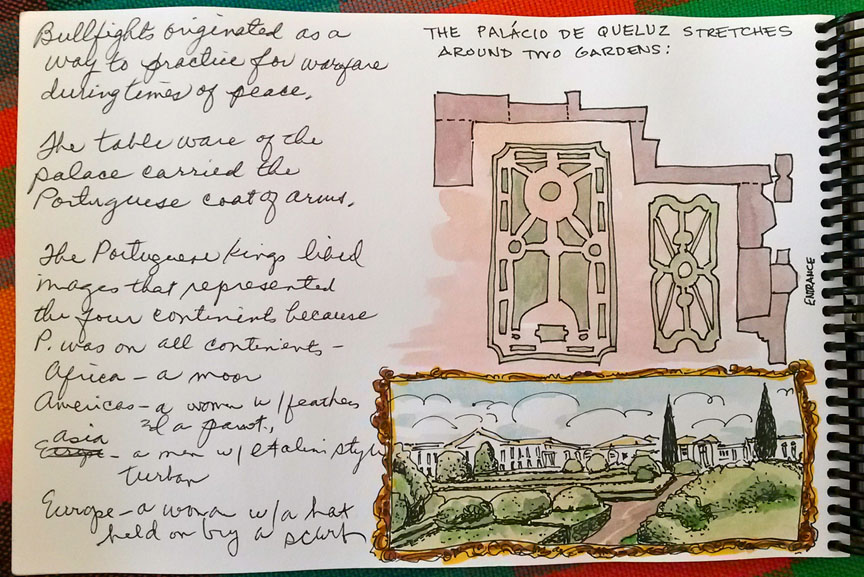 Bullfights originated as a
way to practice for warfare
during times of peace.
The table ware of the
palace carried the
Portuguese coat of arms.
The Portuguese kings liked
images that represented
the four continents because
P. was on all continents -
Africa - a moor
Americas - a women w/feathers
a parrot,
asia
- a man w/ style
turban
Europe - a woman w/a hat
held on by a scarf
THE PALÁCIO DE QUELUZ STRETCHES
AROUND TWO GARDENS:
ENTRANCE